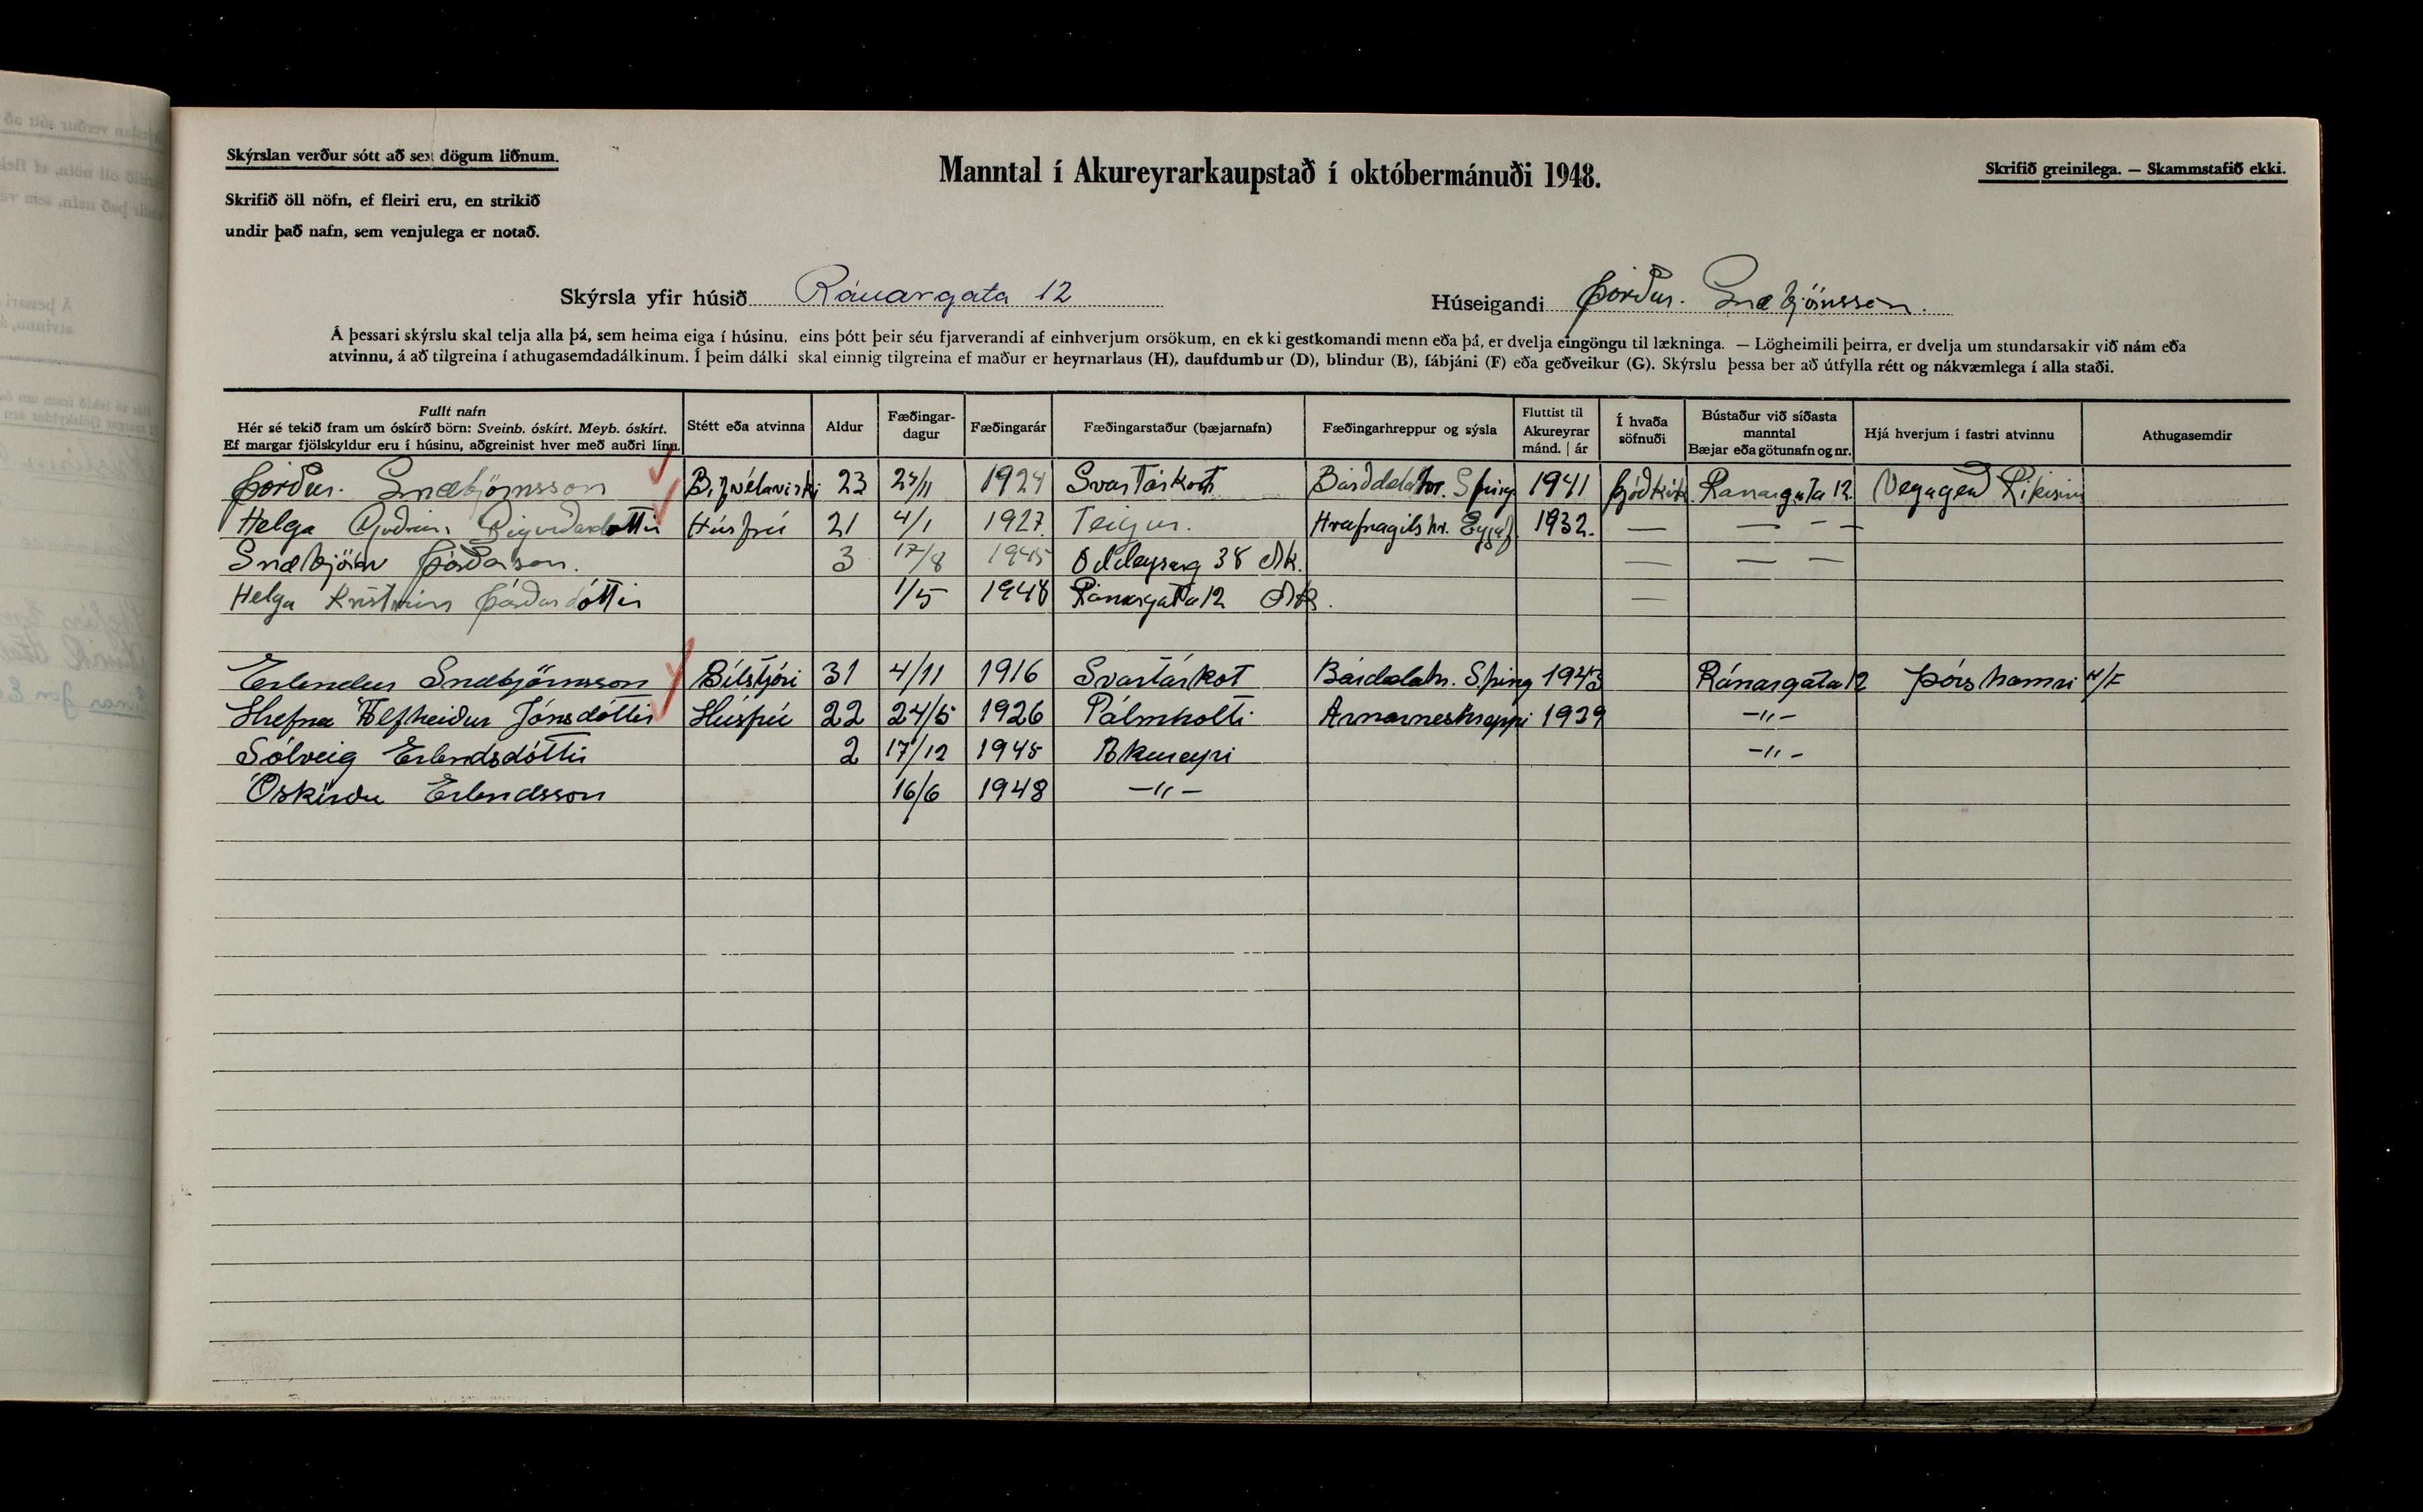 Skýrslan verður sótt að sex dögum liðnum.
Skrifið öll nöfn, ef fleiri eru, en strikið
undir það nafn, sem venjulega er notað.
Manntal í Akureyrarkaupstað í októbermánuði 1948.
Skrifið greinilega. — Skammstafið ekki.
Skýrsla yfir húsið Ránargata 12
Húseigandi Þórður. Snæbjörnsson.
Á þessari skýrslu skal telja alla þá, sem heima eiga í húsinu, eins þótt þeir séu fjarverandi af einhverjum orsökum, en ekki gestkomandi menn eða þá, er dvelja eingöngu til lækninga. — Lögheimili þeirra, er dvelja um stundarsakir við nám eða
atvinnu, á að tilgreina í athugasemdadálkinum. Í þeim dálki skal einnig tilgreina ef maður er heyrnarlaus (H), daufdumbur (D), blindur (B), fábjáni (F) eða geðveikur (G). Skýrslu þessa ber að útfylla rétt og nákvæmlega í alla staði.
Fullt nafn
Hér sé tekið fram um óskírð börn: Sveinb. óskírt. Meyb. óskírt.
Ef margar fjölskyldur eru í húsinu, aðgreinist hver með auðri línu.
Stétt eða atvinna
Aldur
Fæðingar-
dagur
Fæðingarár
Fæðingarstaður (bæjarnafn)
Fæðingarhreppur og sýsla
Fluttist til
Akureyrar
mánd. | ár
Í hvaða
söfnuði
Bústaður við síðasta
manntal
Bæjar eða götunafn og nr.
Hjá hverjum í fastri atvinnu
Athugasemdir
Þórður. Snæbjörnsson Bifvélavirki 23 23/11 1924 Svartárkoti Bárðdalahr. S þing 1941 Þjóðkirk. Ránargata 12. Vegagerð Ríkisins
Helga Guðrún Sigurðardóttir Húsfrú 21 4/1 1927. Teigur. Hrafnagilshr. Eyjaf. 1932. — — - -
Snæbjörn Þórðarson. 3 17/8 1945 Oddeyrarg 38 Ak. — — —
Helga Kristrún Þórðardóttir 1/5 1948 Ránargata 12 Ak. —
Erlendur Snæbjörnsson Bílstjóri 31 4/11 1916 Svartárkot Bárdalahr. S.þing 1943 Ránargata 12 Þórshamri H/F
Hrefna Álfheiður Jónsdóttir Húsfrú 22 24/5 1926 Pálmholti Arnarneshreppi 1939 -"-
Sólveig Erlendsdóttir 2 17/12 1945 Akureyri -"-
Óskírdur Erlendsson 16/6 1948 -"-